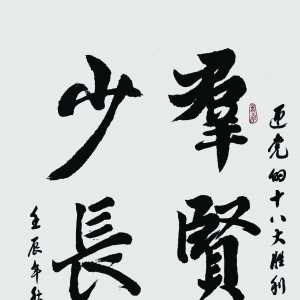 迎党的十八大胜利
羣賢
少長
壬辰年秋